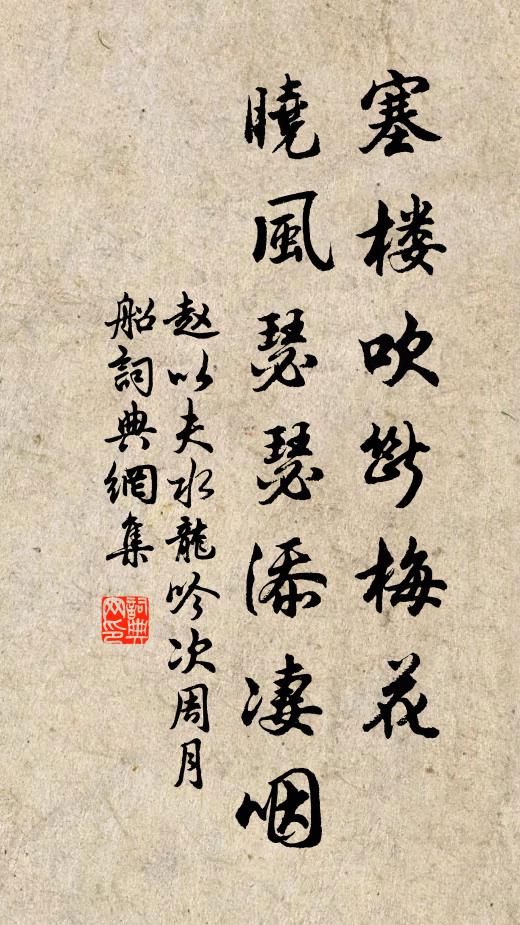 塞楼吹断梅花
曉風瑟瑟添凄咽
赵以夫水龍吟次周月
船詞典網集
詞典网印